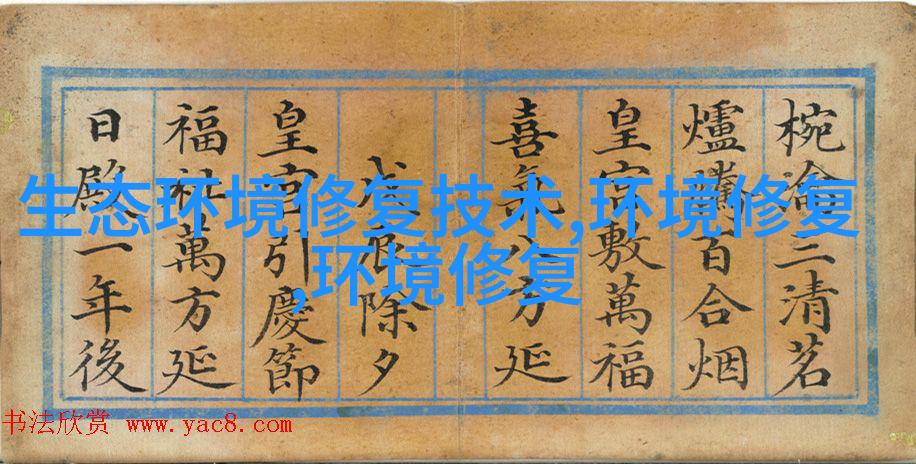 生态环境修复技术,环境修复
,环境修复
椀三清茗
爐百合烟
皇宮敷萬福
喜八方延
戊辰除夕
皇宮引慶節
福祉萬方延
日殿一年後
书法欣赏 www.yac8.com